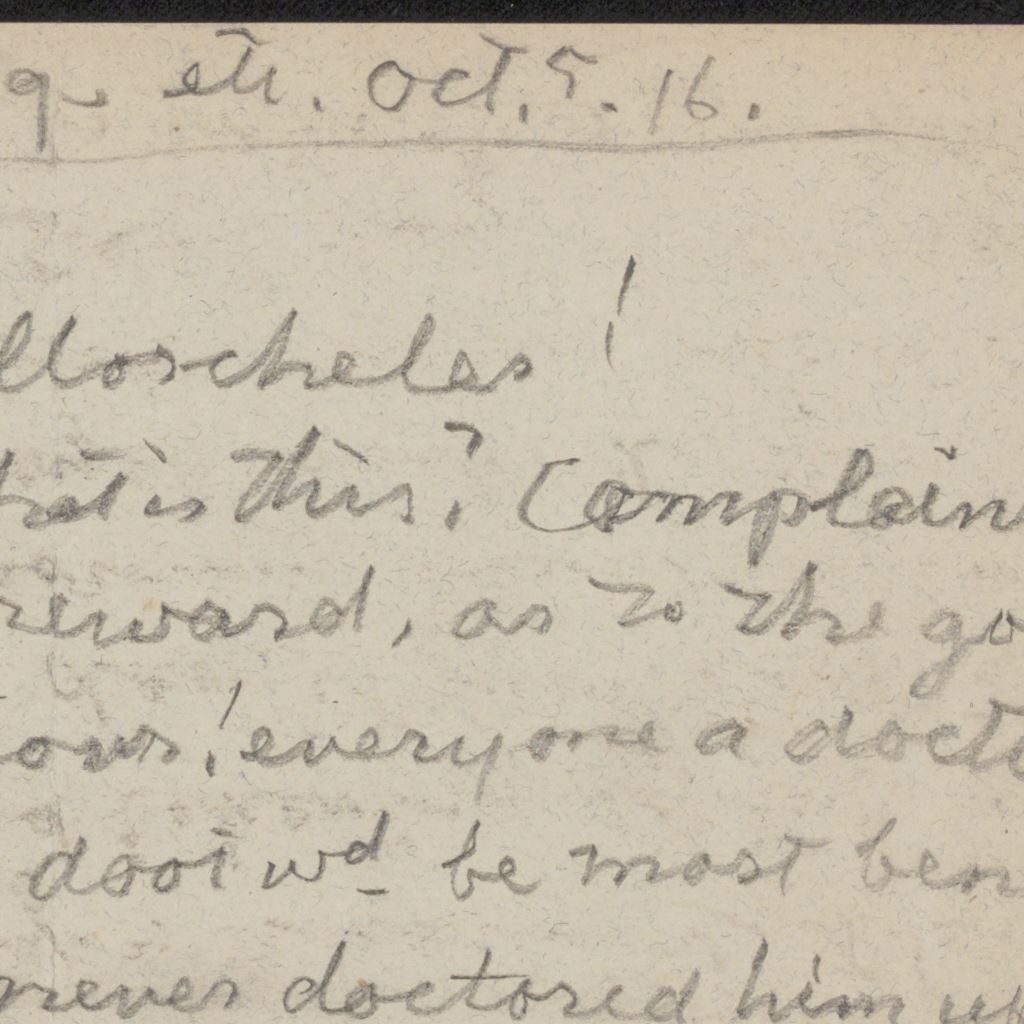 etc. Oct. 5. 16.
Moscheles!
is this? Complain
reward, as to the go
! everyone a docto
wd be most ben
never doctored him up